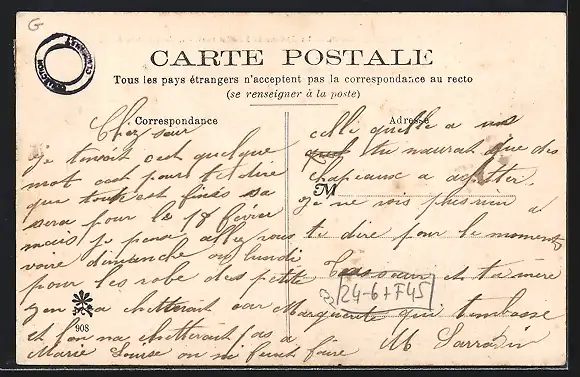 G
CARTE POSTALE
Tous les pays étrangers n'acceptent pas la correspondance au recto
(se renseigner à la poste)
Correspondance
Chez seur
je tenvoit cest quelque
mot cest pour te dire
que tout est finis sa
sera pour le 18 fevrie
mais je pense aller vous
voire dimanche ou lundi
pour les robe des petite
jen chetterait car
et lon na chetterait pas a
Marie Louise on ni peut faire
908
Adresse
celli quelle a
tu naurat que des
chapeaux a achetter.
M
Je ne vois plus rien a
te dire pour le moment
Ta seur et ta mère
Marguerite qui tembasse
M Sarrazin
24-6+F45